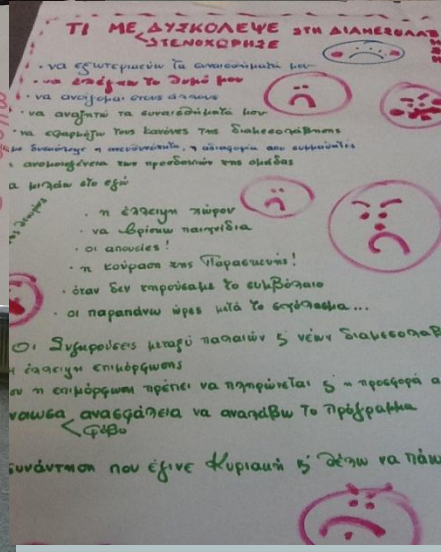 ΤΙ ΜΕ ΔΥΣΚΟΛΕΨΕ ΣΤΗ ΔΙΑΜΕΣΟΛΑΒ
ΣΤΕΝΟΧΩΡΗΣΕ
· να εξωτερικεύω τα συναισθήματά μου
· να ελέγξω το θυμό μου
· να ανοίγομαι στους άλλους
· να αναζητώ τα συναισθήματά μου
· να εφαρμόζω τους κανόνες της διαμεσολάβησης
με δυσκόλεψε η απευθυντότητα, η αδιαφορία απο συμμαθητές
η ανομοιογένεια των προσδοκιών της ομάδας
α μιλάω στο εγώ
· η έλλειψη πόρων
· να βρίσκω παιχνίδια
· οι απουσίες!
· η κούραση της Παρασκευής!
· όταν δεν τηρούσαμε το συμβόλαιο
· οι παραπάνω ώρες μετά το σχόλασμα...
Οι Συγκρούσεις μεταξύ παλαιών & νέων διαμεσολαβ
η έλλειψη επιμόρφωσης
ου η επιμόρφωση πρέπει να πληρώνεται & η προσφορά α
νοιωσα ανασφάλεια να αναλάβω το πρόγραμμα
φόβο
συνάντηση που έγινε Κυριακή & θέλω να πάω